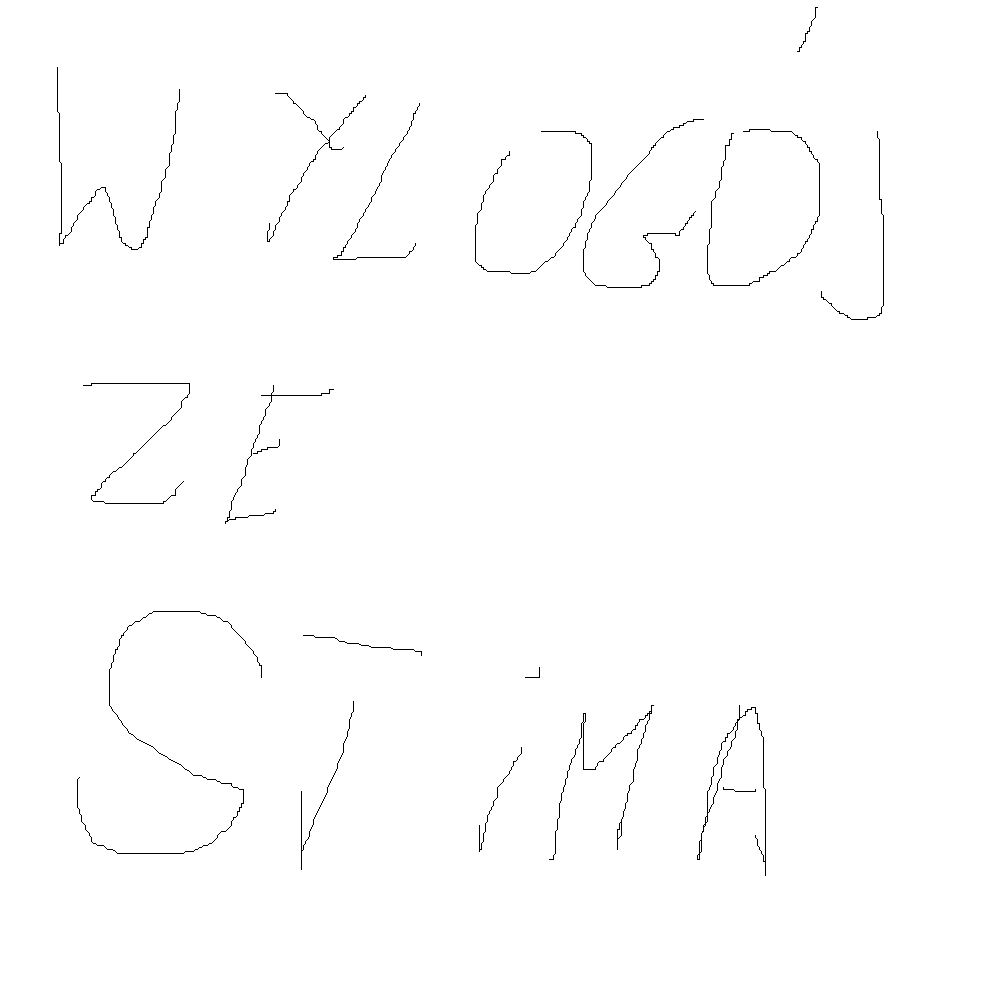 WYLOGÓJ
ZE
STiMA